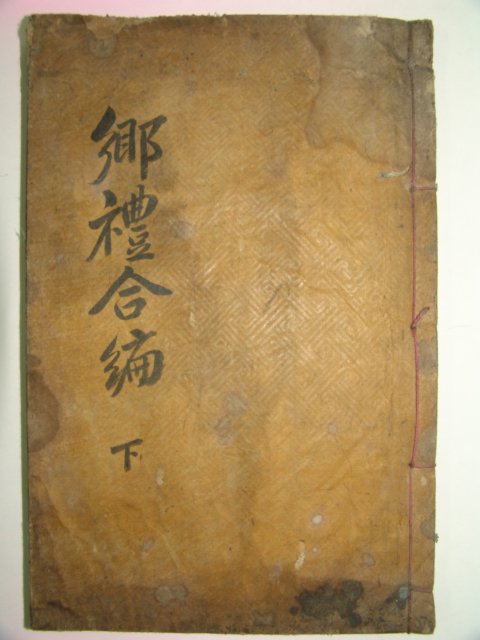 鄉禮合編 下